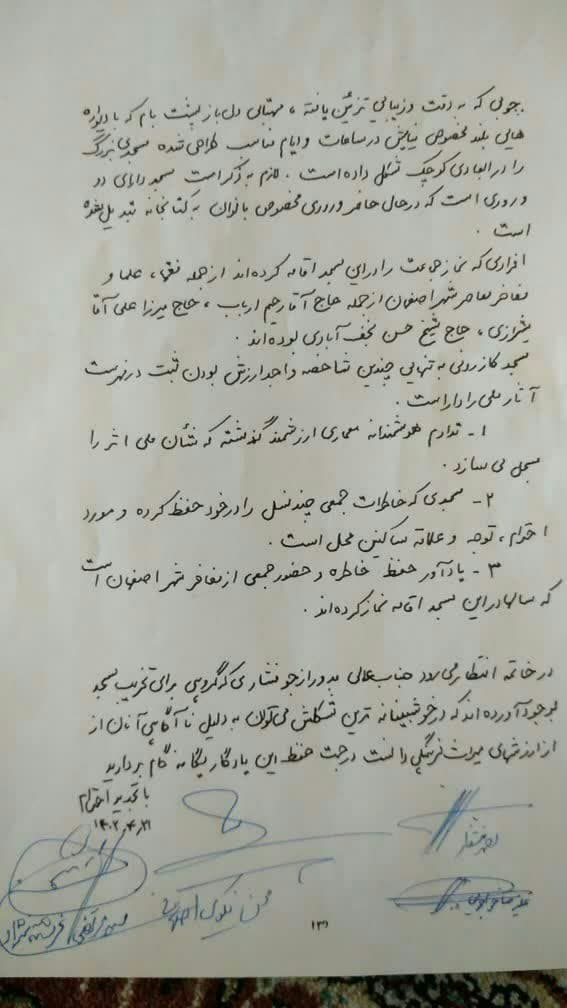 چوبی که به دقت و زیبایی تزئین یافته ، مهتابی دلباز پشت بام که با دیواره
هایی بلند مخصوص نیایش در ساعات و ایام مناسب طراحی شده مسجدی بزرگ
را در ابعادی کوچک شکل داده است . لازم به ذکر است مسجد دارای دو
ورودی است که در حال حاضر ورودی مخصوص بانوان به کتابخانه تبدیل شده
است .
افرادی که نماز جماعت را در این مسجد اقامه کرده‌اند از جمله فقها ، علما و
مفاخر معاصر شهر اصفهان از جمله حاج آقا رحیم ارباب ، حاج میرزا علی آقا
شیرازی ، حاج شیخ حسن نجف آبادی بوده‌اند .
مسجد کازرونی به تنهایی چندین شاخصه واجد ارزش بودن ثبت در فهرست
آثار ملی را داراست .
۱- تداوم هوشمندانه معماری ارزشمند گذشته که نشان ملی اثر را
مسجل می سازد .
۲- مسجدی که خاطرات جمعی چند نسل را در خود حفظ کرده و مورد
احترام ، توجه و علاقه ساکنین محل است .
۳- یادآور حفظ خاطره و حضور جمعی از مفاخر شهر اصفهان است
که سالها در این مسجد اقامه نماز کرده‌اند .
در خاتمه انتظار می رود جناب عالی به دور از جو فشاری که گروهی برای تخریب مسجد
بوجود آورده‌اند که در خوشبینانه ترین شکلش می‌توان به دلیل ناآگاهی آنان از
از ارزشهای میراث فرهنگی دانست در جهت حفظ این یادگار یگانه گام بردارید
با تجدید احترام
۱۴۰۲,۴,۲۱